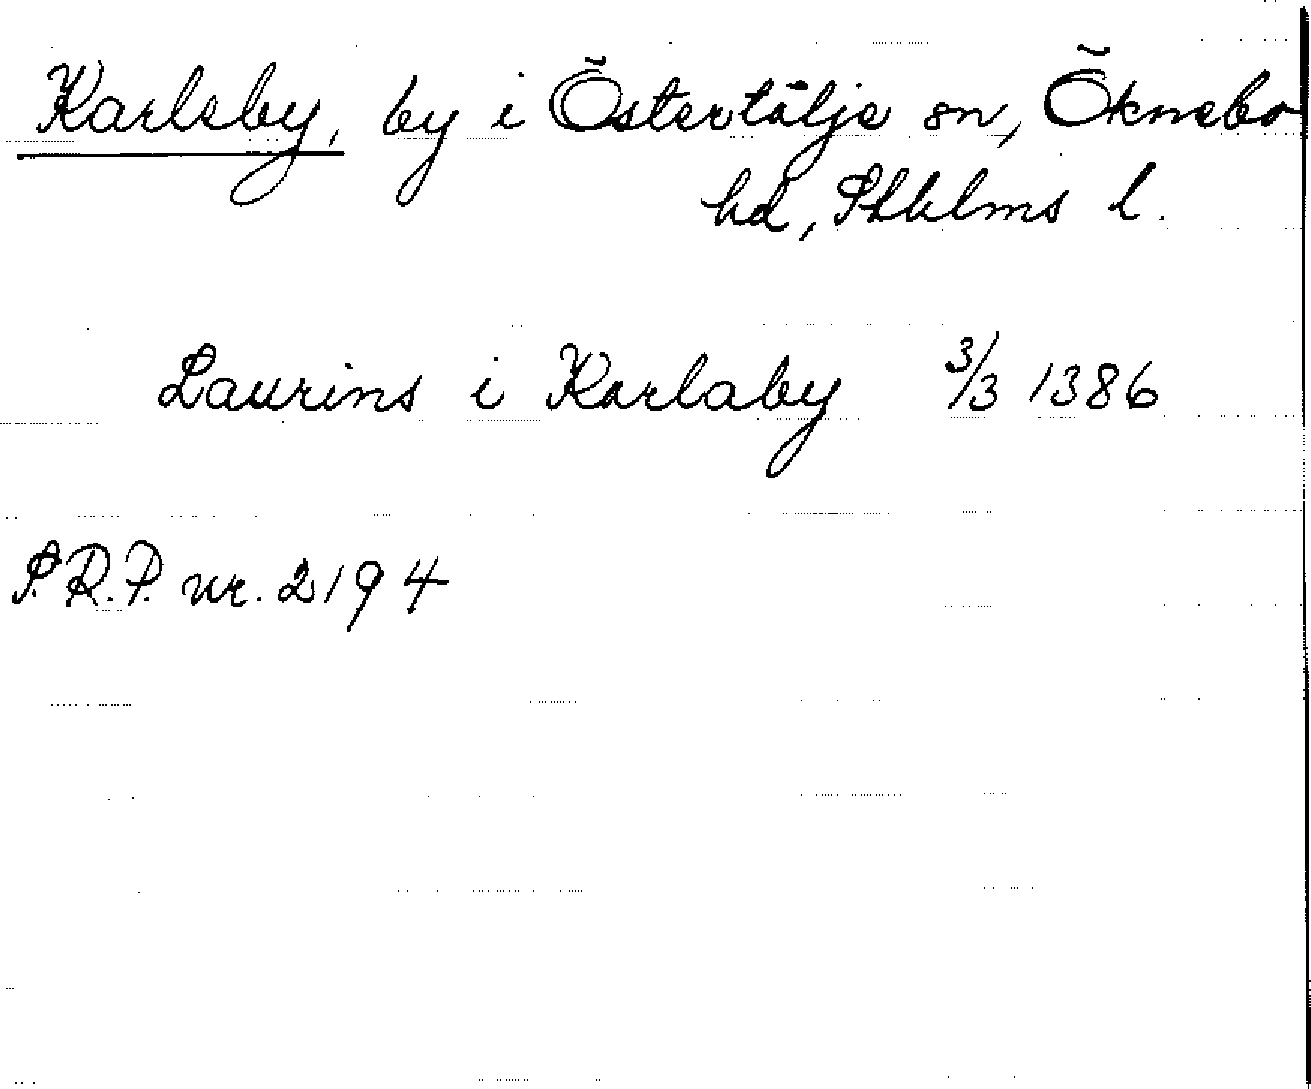 Karleby, by i Östertälje sn, Öknebo
hd, Sthlms l.
Laurins i Karlaby 3/3 1386
S.R.P. nr. 2194